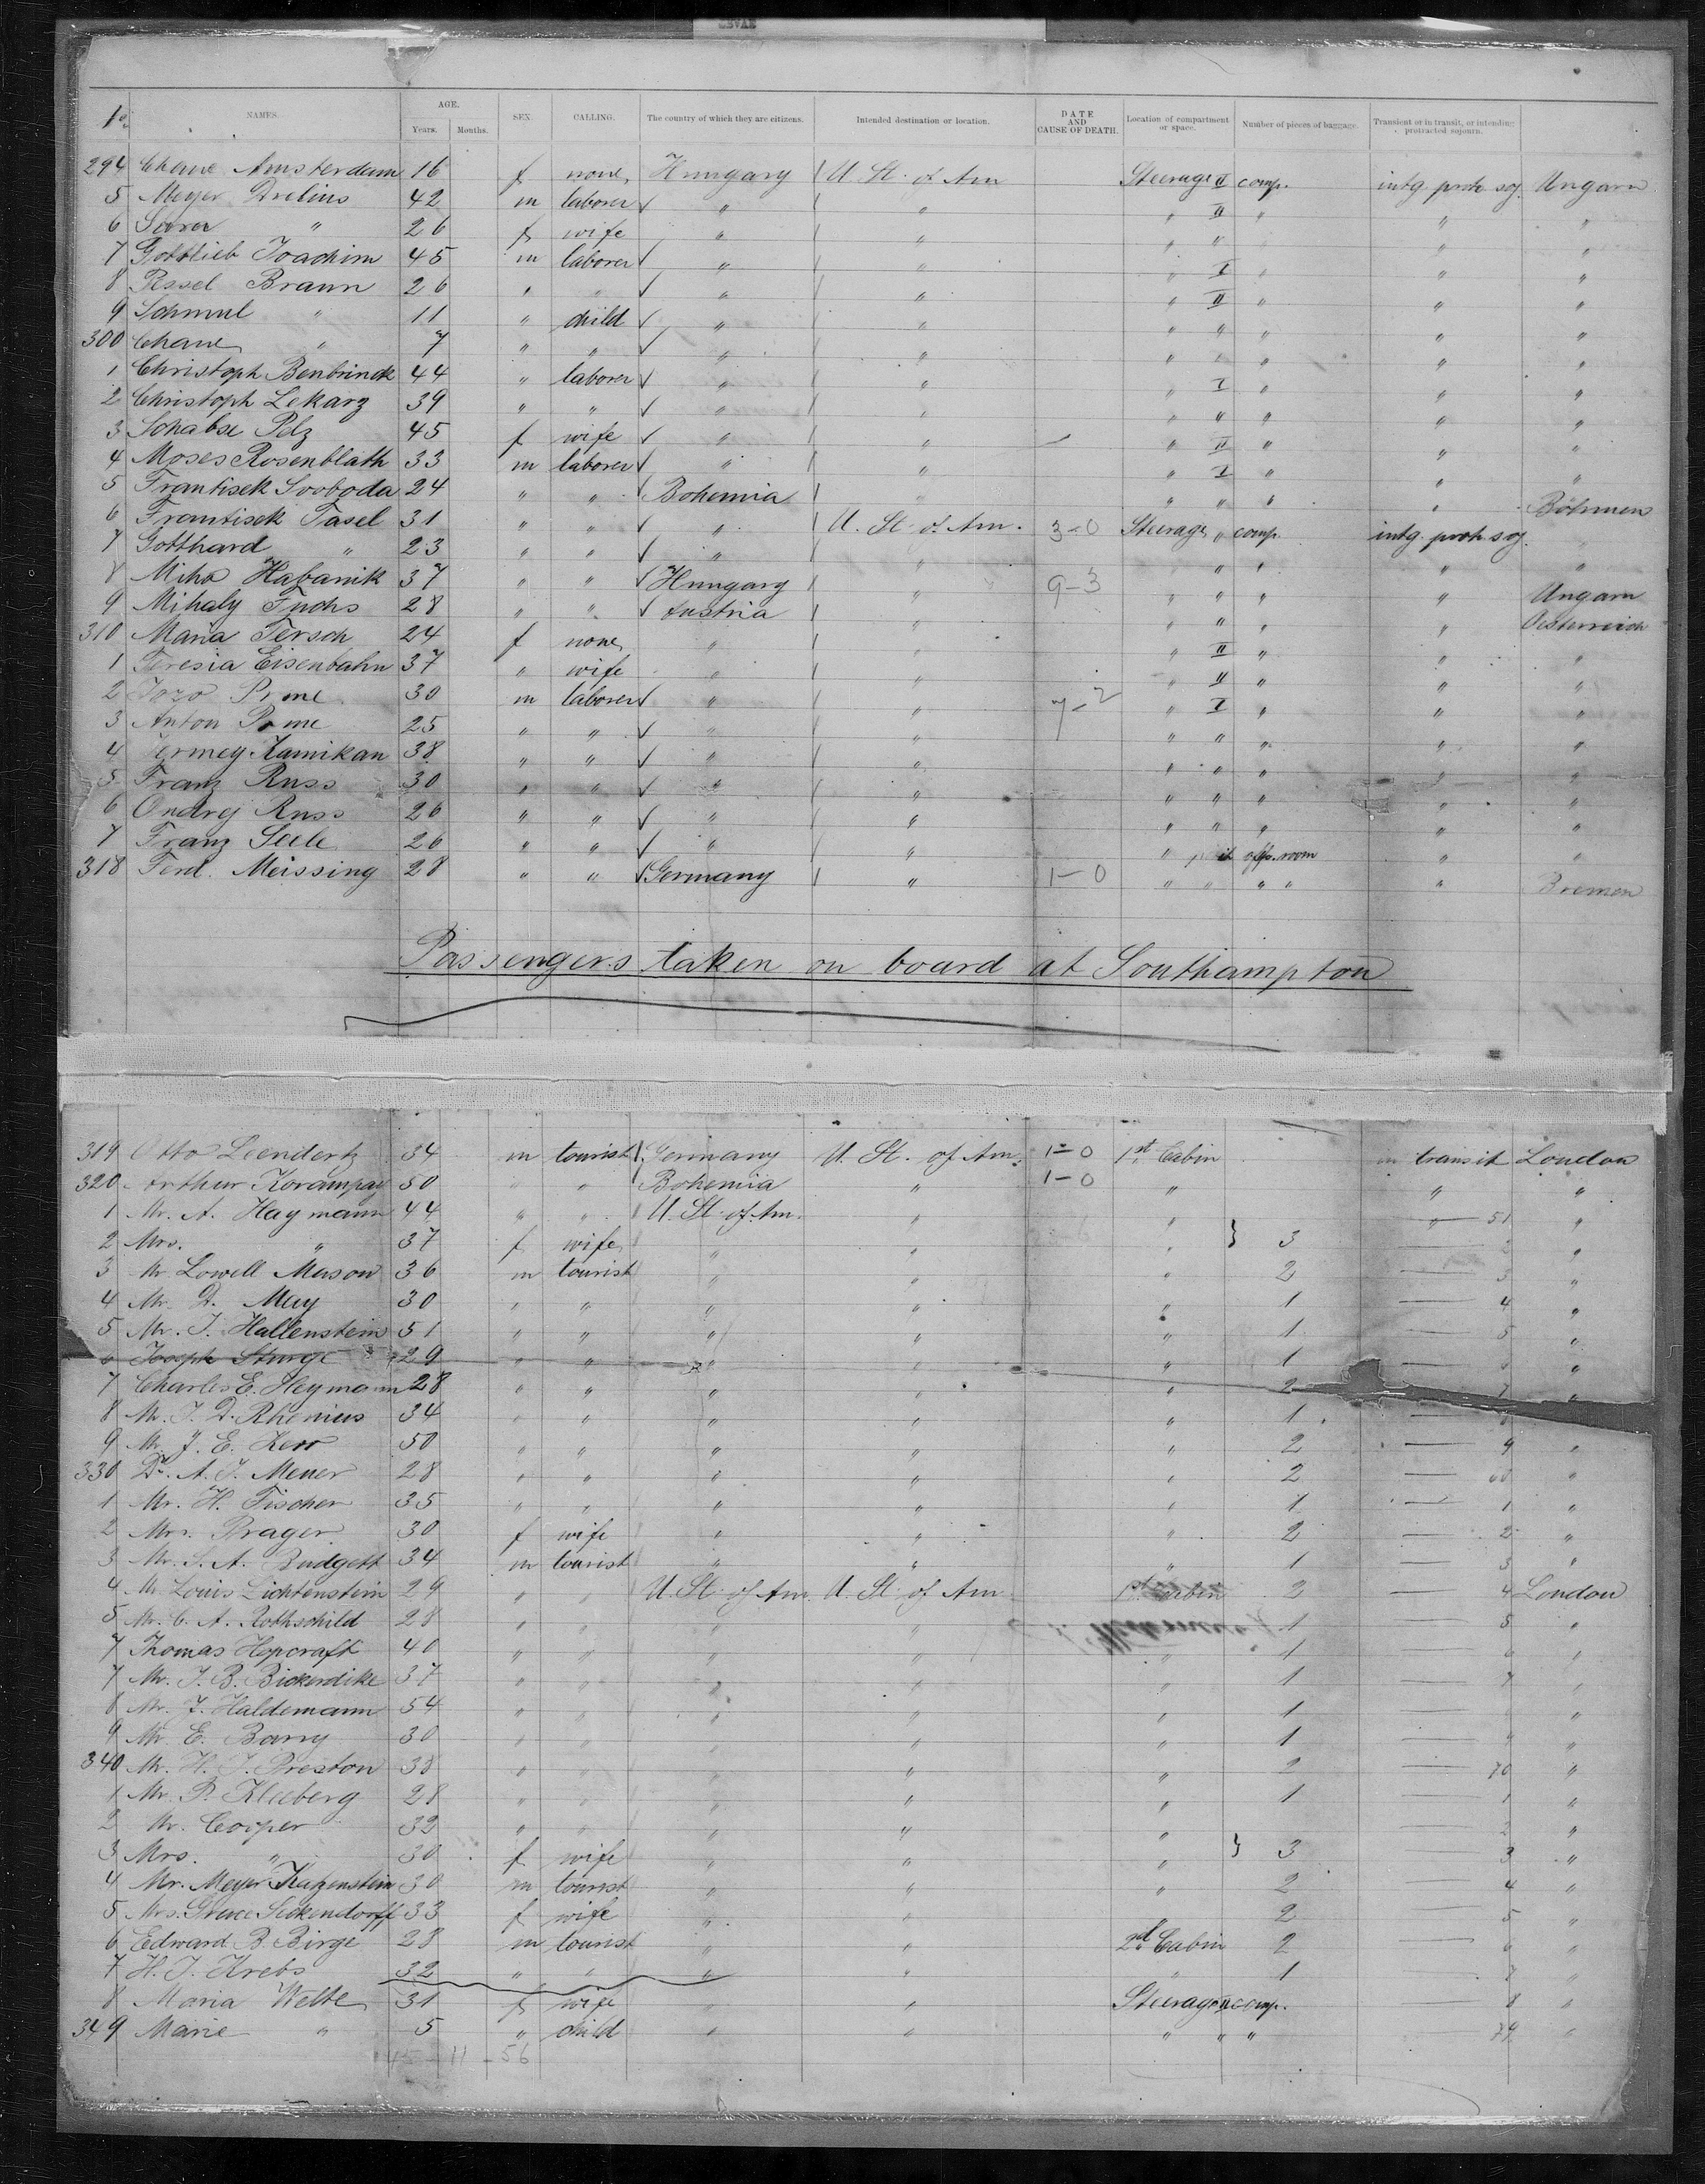 NAMES. AGE. Years. Months. SEX. CALLING. The country of which they are citizens. Intended destination or location. DATE AND CAUSE OF DEATH. Location of compartment or space. Number of pieces of baggage. Transient or in transit, or intending protracted sojourn.
294 Chane Amsterdam 16 f none Hungary U. St. of Am Steerage II comp. intg. protr. soj. Ungarn
5 Meyer Drelius 42 m laborer " " " II " " "
6 " 26 f wife " " " " " "
7 Gottlieb Joachim 45 m laborer " " " I " " "
8 Pessel Braun 26 " " " " " II " " "
9 Schmul " 11 " child " " " " " " "
300 Chane " 7 " " " " " " " " "
1 Christoph Benbrinck 44 " laborer " " " I " " "
2 Christoph Lekarz 39 " " " " " " " " "
3 Schabse Pelz 45 f wife " " " II " " "
4 Moses Rosenblath 33 m laborer " " " I " " "
5 Frantisek Svoboda 24 " " Bohemia " " " " " Böhmen
6 Frantisek Tasel 31 " " " U. St. of Am. 3-0 Steerage " comp. intg. protr. soj. "
7 Gotthard " 23 " " " " " " " "
8 Miho Habanik 37 " " Hungary " 9-3 " " " " Ungarn
9 Mihaly Fuchs 28 " " Austria " " " " " Oesterreich
310 Maria Tersch 24 f none " " " II " " "
1 Teresia Eisenbahn 37 " wife " " " II " " "
2 Jozo 30 m laborer " " 7-2 " I " " "
3 Anton 25 " " " " " " " " "
4 38 " " " " " " " " "
5 Franz Russ 30 " " " " " " " " "
6 Ondrej Russ 26 " " " " " " " " "
7 Franz Seele 26 " " " " " room " "
318 Ferd. Meissing 28 " " Germany " 1-0 " " " " " Bremen
Passengers taken on board at Southampton
319 Otto Leendertz 34 m tourist Germany U. St. of Am. 1-0 1st Cabin in transit London
320 Arthur 50 " " Bohemia " 1-0 " " "
1 Mr. A. Haymann 44 " " U. St. of Am. " " " 51 "
2 Mrs. " 37 f wife " " " } 3 2 "
3 Mr Lowell Mason 36 m tourist " " " 2 3 "
4 Mr. D. May 30 " " " " " 1 4 "
5 Mr. J. Hallenstein 51 " " " " " 1 5 "
6 Joseph Sturge 29 " " " " " 1 "
7 Charles E. Heymann 28 " " " " " 2 7 "
8 Mr. J. D. Rhenius 34 " " " " " 1 "
9 Mr. J. E. Kerr 50 " " " " " 2 9 "
330 Dr. A. J. Meuer 28 " " " " " 2 60 "
1 Mr. H. Fischer 35 " " " " " 1 1 "
2 Mrs. Prager 30 f wife " " " 2 2 "
3 Mr. S. A. Budgett 34 m tourist " " " 1 3 "
4 Mr Louis Lichtenstein 29 " " U. St. of Am. U. St. of Am 1st Cabin 2 4 London
5 Mr. C. A. Rothschild 28 " " " " 1 5 "
7 Thomas Hopcraft 40 " " " " " 1 6 "
7 Mr. J. B. Bickerdike 37 " " " " " 1 7 "
8 Mr. J. Haldemann 54 " " " " " 1 "
9 Mr E. Barry 30 " " " " " 1 "
340 Mr. H. J. Preston 38 " " " " " 2 70 "
1 Mr. P. Kleeberg 28 " " " " " 1 1 "
2 Mr. Cooper 32 " " " " " 2 "
3 Mrs. " 30 f wife " " " } 3 3 "
4 Mr. Meyer Katzenstein 30 m tourist " " " 2 4 "
5 Mrs. Seckendorff 33 f wife " " " 2 5 "
6 Edward B. Birge 28 m tourist " " 2d Cabin 2 6 "
7 H. J. Krebs 32 " " " " " 1 7 "
8 Maria Welte 31 f wife " " Steerage II comp. 8 "
349 Marie " 5 " child " " " " " 79 "
45 - 11 - 56